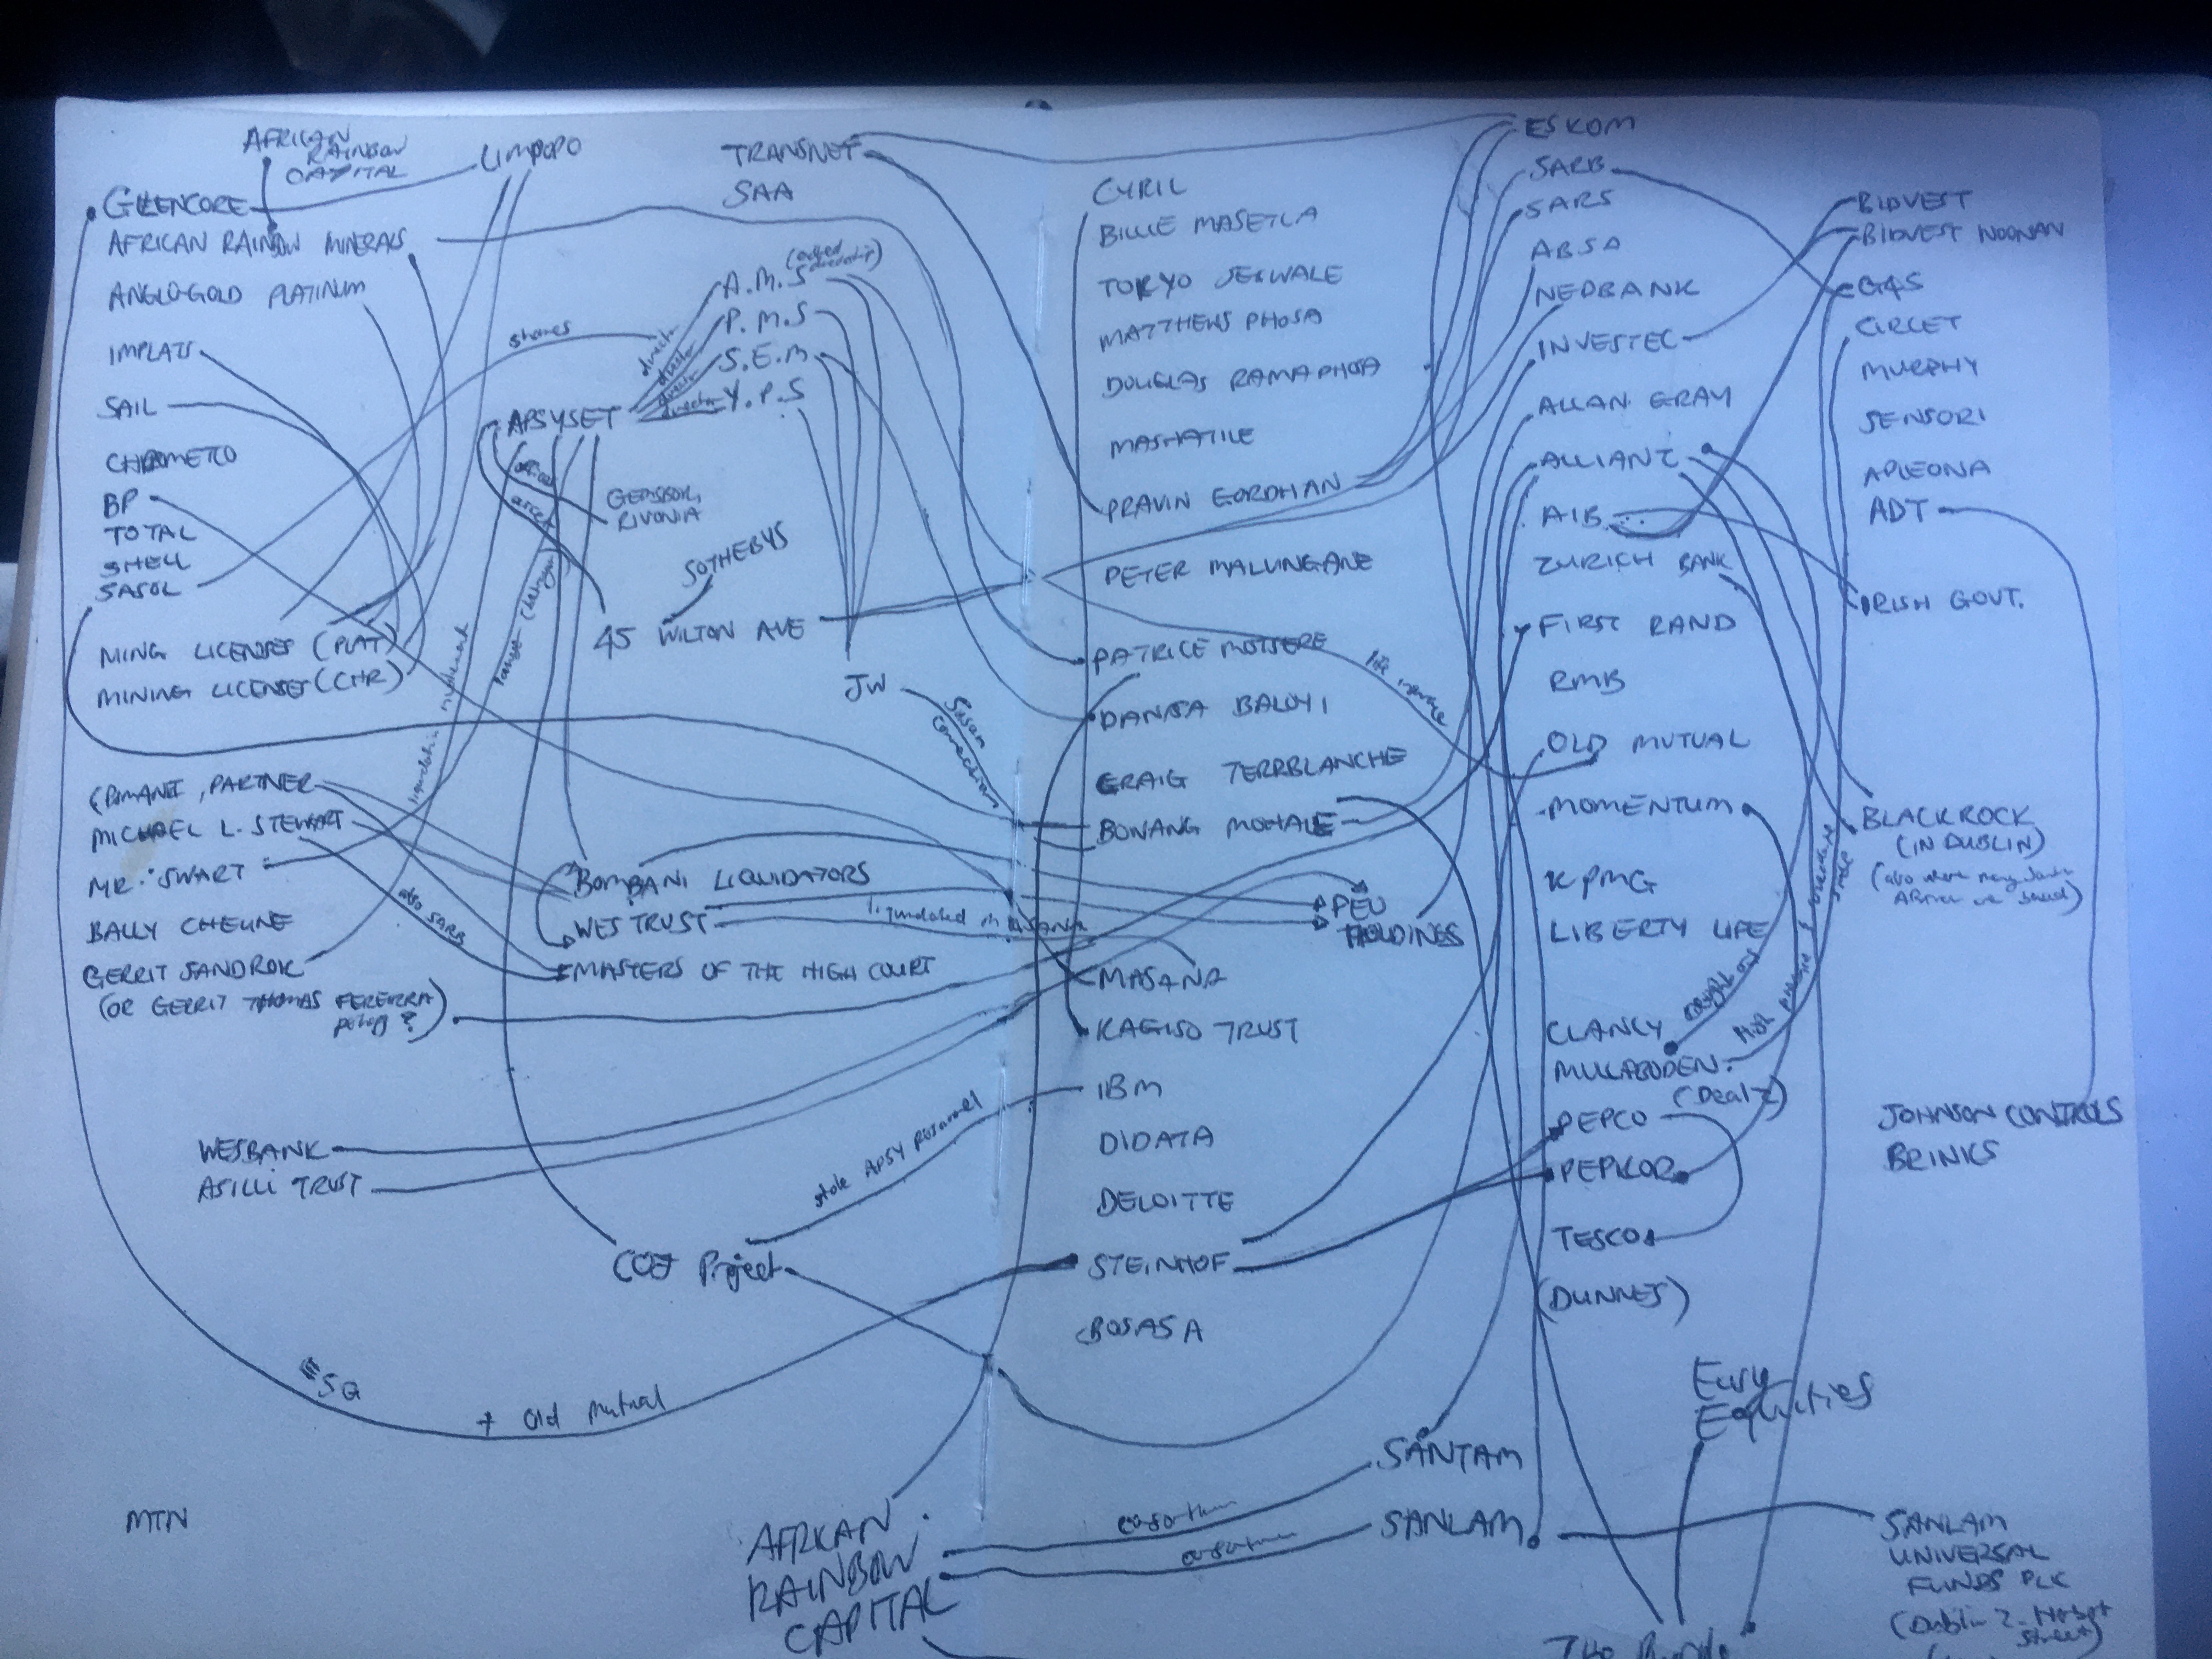 AFRICAN
RAINBOW
CAPITAL
LIMPOPO
GLENCORE
AFRICAN RAINBOW MINERALS
ANGLOGOLD PLATINUM
IMPLATS
SAIL
CHROMETCO
BP
TOTAL
SHELL
SASOL
MING LICENSES (PLAT)
MINING LICENSES (CHR)
, PARTNER
MICHAEL L. STEWART
MR. SWART
BALLY CHEUNE
GERRIT SANDROK
(OR GERRIT THOMAS FEREIRRA
?)
WESBANK
ASILLI TRUST
SG
+ Old Mutual
MTN
TRANSNET
SAA
A.M.S
P.M.S
S.E.M
Y.P.S
director
director
director
director
shares
APSYSET
office
asset
GEMSBOK,
RIVONIA
SOTHEBYS
45 WILTON AVE
JW
Susan
Connection
also SARB
BOMBANI LIQUIDATORS
WESTRUST
liquidated in MASANA
MASTERS OF THE HIGH COURT
stole APSY Personnel
COJ Project
AFRICAN
RAINBOW
CAPITAL
CYRIL
BILLIE MASETLA
TOKYO SEXWALE
MATTHEWS PHOSA
DOUGLAS RAMAPHOSA
MASHATILE
PRAVIN GORDHAN
PETER MALUNGANE
PATRICE MOTSEPE
DANISA BALOYI
CRAIG TERRBLANCHE
BONANG MOHALE
PEU
HOLDINGS
MASANA
KAGISO TRUST
IBM
DIDATA
DELOITTE
STEINHOF
BOSASA
SANTAM
SANLAM
ESKOM
SARB
SARS
ABSA
NEDBANK
INVESTEC
ALLAN GRAY
ALLIANZ
AIB
ZURICH BANK
FIRST RAND
RMB
OLD MUTUAL
MOMENTUM
KPMG
LIBERTY LIFE
CLANCY
MULLABODEN.
(Dealz)
PEPCO
PEPKOR
TESCO
(DUNNES)
Easy
Equities
BIDVEST
BIDVEST NOONAN
G4S
CIRCET
MURPHY
SENSORI
APLEONA
ADT
IRISH GOVT.
BLACKROCK
(IN DUBLIN)
JOHNSON CONTROLS
BRINKS
SANLAM
UNIVERSAL
FUNDS PLC
(Dublin 2
Street)